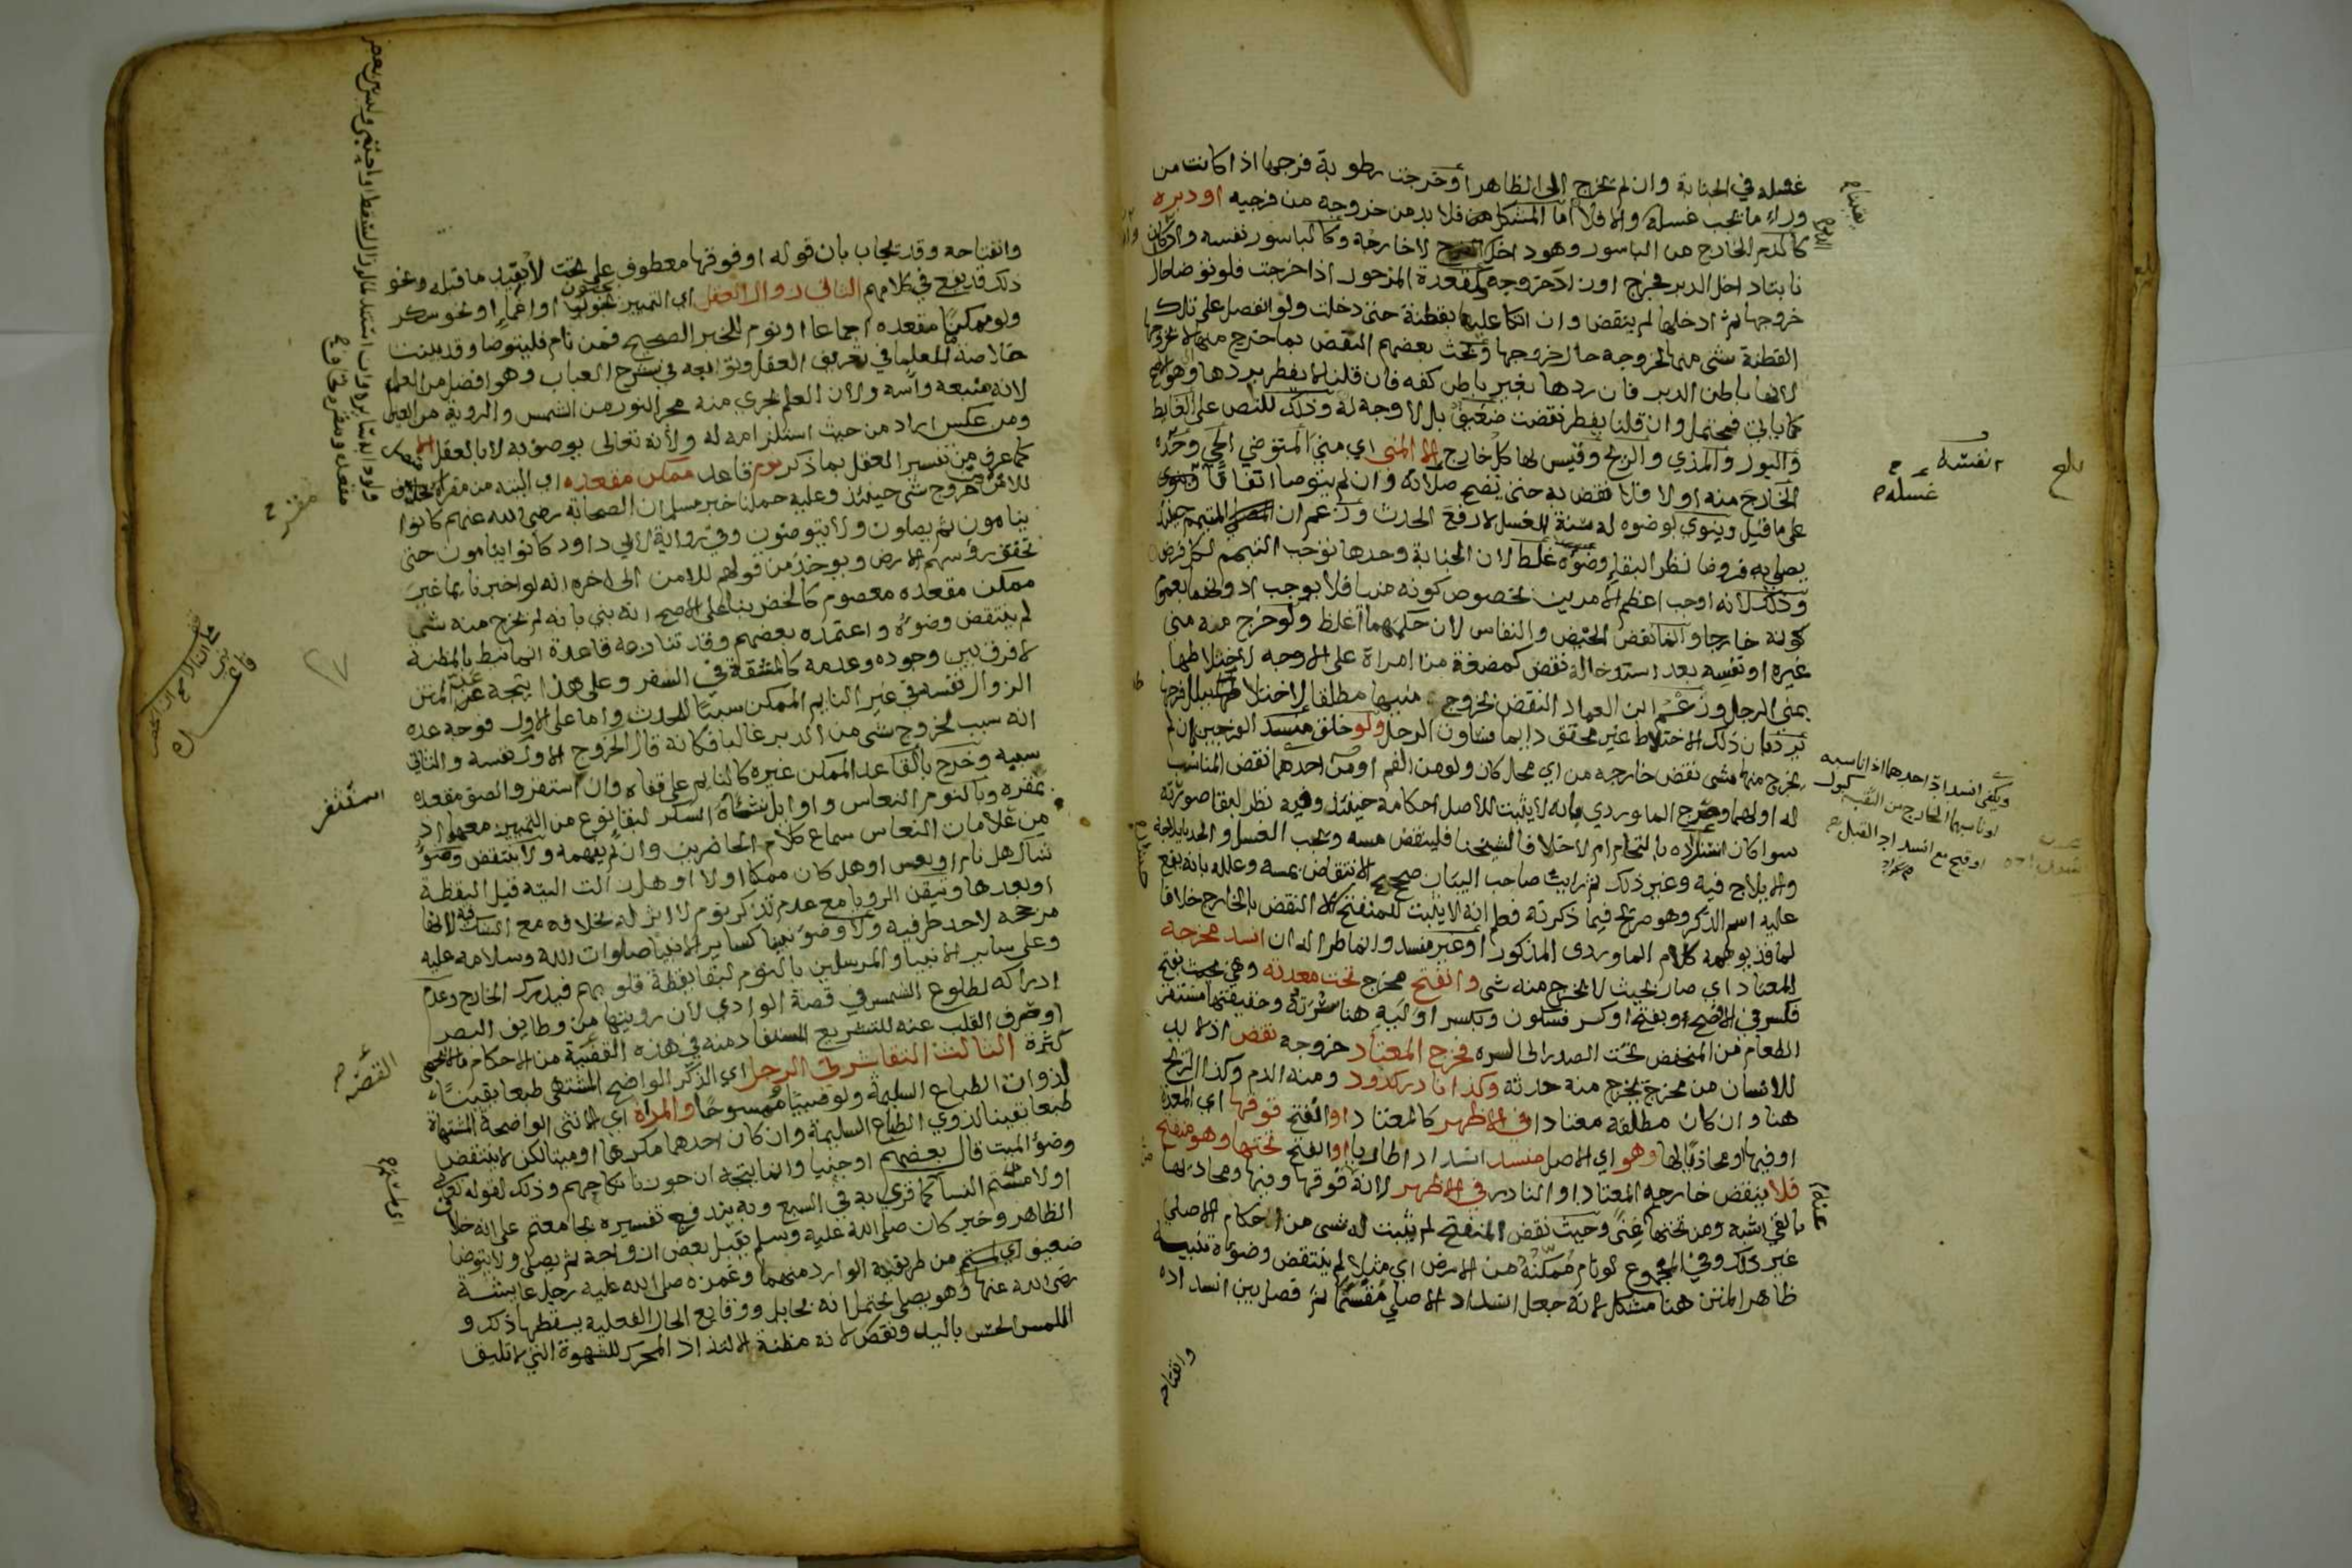 غسله في الجنابة وان لم يخرج الى الظاهر او خرجت رطوبة فرجها اذا كانت من
وراء ما يجب غسله والا فلا اما المشكل فلا بد من خروجه من فرجيه او دبره
كالدم الخارج من الباسور وهو داخل لا خارجه وكالباسور نفسه وان كان
نابتا داخل الدبر فخرج او زاد خروجه وكمقعدة المزحور اذا خرجت فلو توضا حال
خروجها ثم ادخلها لم ينتقض وان اتكا عليها بقطنة حتى دخلت ولو انفصل على تلك
القطنة شي منها لخروجه حال خروجها وبحث بعضهم النقض بما خرج منها لا بخروجها
لانها باطن الدبر فان ردها بغير باطن كفه فان قلنا لا يفطر بردها وهو الاصح
كما ياتي فمحتمل وان قلنا يفطر نقضت ضعيف بل لا وجه له وذلك للنص على الغايط
والبول والمذي والريح وقيس لها كل خارج الا المني اي مني المتوضي الحي وحده
الخارج منه اولا فلا نقض به حتى تصح صلاته وان لم يتوضا اتفاقا
على ما قيل وينوي بوضوه له سنة الغسل لا رفع الحدث وزعم ان المتيمم حينئذ
يصلي به فروضا نظرا لبقاء وضوه غلط لان الجنابة وحدها توجب التيمم لكل فرض
وذلك لانه اوجب اعظم الامرين بخصوص كونه منيا فلا يوجب ادونهما بعموم
كونه خارجا وانما نقض الحيض والنفاس لان حكمهما اغلظ ولو خرج منه مني
غيره او نفسه بعد استدخاله نقض كمضغة من امراة على الاوجه لاختلاطها
بمني الرجل وزعم ابن العماد النقض بخروج منيها مطلقا لاختلاطه ببلل فرجها
يرد بان ذلك الاختلاط غير محقق دايما فتساوت الرجل ولو خلق منسد الفرجين بان لم
يخرج منهما شي نقض خارجه من اي محل كان ولو من الفم او من احدهما نقض المناسب
له اولهما وصرح الماوردي بانه لا يثبت للاصل احكامه حينئذ وفيه نظر لبقا صورته
سوا كان انسداده بالتحام ام لا خلافا لشيخنا فلينقض مسه ويجب الغسل والحد بايلاجه
والايلاج فيه وغير ذلك ثم رايت صاحب البيان صحح الانتقاض بمسه وعلله بانه يقع
عليه اسم الذكر وهو صريح فيما ذكرته فعلم انه لا يثبت للمنفتح الا النقض بالخارج خلافا
لما قد يوهمه كلام الماوردي المذكور او غير منسد وانما طرا له ان انسد مخرجه
المعتاد اي صار بحيث لا يخرج منه شي وانفتح مخرج تحت معدته وهي بفتح
فكسر في الافصح او بفتح او كسر فسكون وبكسر اوليه هنا سرته وحقيقتها مستقر
الطعام من المنخفض تحت الصدر الى السره فخرج المعتاد خروجه نقض اذ لا بد
للانسان من مخرج يخرج منه حدثه وكذا نادر كدود ومنه الدم وكذا الريح
هنا وان كان مطلقه معتادا في الاظهر كالمعتاد او انفتح فوقها اي المعدة
او فيها او محاذيا لها وهو اي الاصل منسد انسدادا طاريا او انفتح تحتها وهو منفتح
فلا ينقض خارجه المعتاد او النادر في الاظهر لانه فوقها وفيها ومحاذيها
بالقي اشبه ومن تحتها غني وحيث نقض المنفتح لم يثبت له شي من احكام الاصلي
غير ذلك وفي المجموع لو نام ممكنه من الارض اي مثلا لم ينتقض وضوه تنبيه
ظاهر المتن هنا مشكل لانه جعل انسداد الاصلي مقسما ثم فصل بين انسداده
وانفتاحه
نفسه
غسله
بلغ
ويكفي انسداد احدهما اذا ناسبه
او ناسبهما الخارج من الثقبة كبول
او قيح مع انسداد القبل
وانفتاحه وقد يجاب بان قوله او فوقها معطوف على تحت لا بقيد ما قبله ونحو
ذلك قد يقع في كلامهم الثاني زوال العقل اي التمييز بجنون او اغماء او نحو سكر
ولو ممكنا مقعده اجماعا او نوم للخبر الصحيح فمن نام فليتوضا وقد بينت
خلاصة ما للعلما في تعريف العقل وتوابعه في شرح العباب وهو افضل من العلم
لانه منبعه واسه ولان العلم يجري منه مجرى النور من الشمس والروية من العين
ومن عكس اراد من حيث استلزامه له ولانه تعالى يوصف به لا بالعقل الا
كما عرف من تفسير العقل بما ذكر نوم قاعد ممكن مقعده اي اليته من مقره
للامن من خروج شي حينئذ وعليه حملنا خبر مسلم ان الصحابة رضي الله عنهم كانوا
ينامون ثم يصلون ولا يتوضون وفي رواية لابي داود كانوا ينامون حتى
تخفق رؤسهم الارض ويوخذ من قولهم للامن الى اخره انه لو اخبر نايما غير
ممكن مقعده معصوم كالخضر بنا على الاصح انه نبي بانه لم يخرج منه شي
لم ينتقض وضوه واعتمده بعضهم وقد تنازعه قاعدة ان ما نيط بالمظنة
لا فرق بين وجوده وعدمه كالمشقة في السفر وعلى هذا يتجه عد المتن
الزوال نفسه في غير النايم الممكن سببا للحدث واما على الاول فوجه عده
انه سبب لخروج شي من الدبر غالبا فكانه قال الخروج الاول نفسه والثاني
سببه وخرج بالقاعد الممكن غيره كالنايم على قفاه وان استفر والصق مقعده
بمقره وبالنوم النعاس واوايل نشاة السكر لبقا نوع من التمييز معهما اذ
من علامات النعاس سماع كلام الحاضرين وان لم يفهمه ولا ينتقض وضو
شاك هل نام او نعس او هل كان ممكنا اولا او هل زالت اليته قبل اليقظة
او بعدها وتيقن الرويا مع عدم تذكر نوم لا اثر له بخلافه مع الشك فيه لانها
مرجحة لاحد طرفيه ولا وضو نبينا كساير الانبيا صلوات الله وسلامه عليه
وعلى ساير الانبيا والمرسلين بالنوم لبقا يقظة قلوبهم فيدرك الخارج وعدم
ادراكه لطلوع الشمس في قصة الوادي لان رويتها من وظايف البصر
او صرف القلب عنه للتشريع المستفاد منه في هذه القضية من الاحكام ما لا يحصى
كثرة الثالث التقا بشرتي الرجل اي الذكر الواضح المشتهى طبعا يقينا
لذوات الطباع السليمة ولو صبيا وممسوحا والمراة اي الانثى الواضحة المشتهاة
طبعا يقينا لذوي الطباع السليمة وان كان احدهما مكرها او ميتا لكن لا ينتقض
وضؤ الميت قال بعضهم او جنيا وانما يتجه ان جوزنا نكاحهم وذلك لقوله تعالى
او لامستم النسا كما قري به في السبع وبه يندفع تفسيره بجامعتم على انه خلاف
الظاهر وخبر كان صلى الله عليه وسلم يقبل بعض ازواجه ثم يصلي ولا يتوضا
ضعيف من طريقيه الوارد منهما وغمزه صلى الله عليه رجل عايشة
رضي الله عنها وهو يصلي يحتمل انه بحايل ووقايع الحال الفعلية يسقطها ذكر و
اللمس الحس باليد ونقض لانه مظنة الالتذاذ المحرك للشهوة التي لا تليق
مقره
القصة